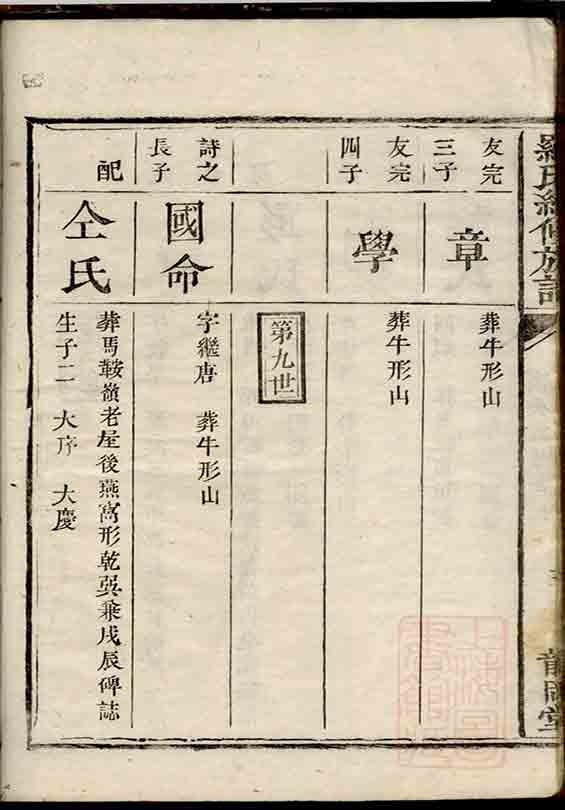 羅氏續修族譜
友完
三子
章
葬牛形山
友完
四子
學
葬牛形山
第九世
詩之
長子
國命
字繼唐 葬牛形山
配
仝氏
葬馬鞍嶺老屋後燕窩形乾巽兼戌辰碑誌
生子二 大序 大慶